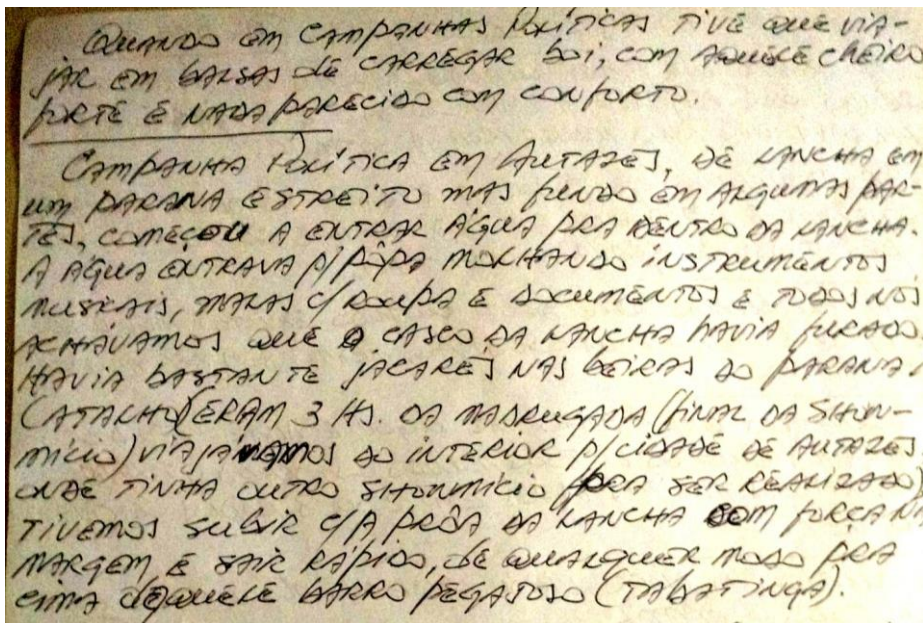 Quando em campanhas políticas tive que via-
jar em balsas de carregar boi, com aquele cheiro
forte e nada parecido com conforto.
Campanha política em Autazes, de lancha em
um parana estreito mas fundo em algumas par-
tes, começou a entrar água pra dentro da lancha.
A água entrava p/ pôpa molhando instrumentos
musicais, malas c/ roupa e documentos e todos nós
achávamos que o casco da lancha havia furado.
Havia bastante jacares nas beiras do parana
(atalho) eram 3 hs. da madrugada (final da show-
mício) viajávamos do interior p/ cidade de Autazes,
onde tinha outro showmício pra ser realizado)
tivemos subir c/ a prôa da lancha com força n
margem e sair rápido, de qualquer modo pra
cima daquele barro pegajoso (Tabatinga).